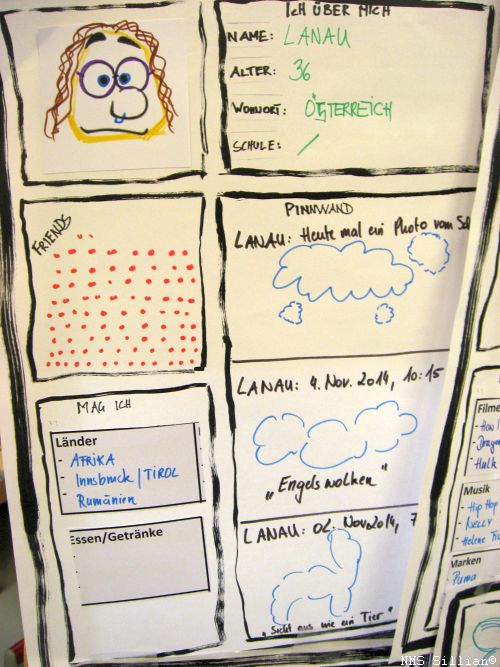 ICH ÜBER MICH
NAME: LANAU
ALTER: 36
WOHNORT: ÖSTERREICH
SCHULE: /
FRIENDS
PINNWAND
LANAU: Heute mal ein Photo vom
LANAU: 4. Nov. 2014, 10:15
"Engelswolken"
LANAU: 02. Nov. 2014, 7
"Sieht aus wie ein Tier"
MAG ICH
Länder
- AFRIKA
- Innsbruck / TIROL
- Rumänien
Essen/Getränke
Filme
- How I
- Dragon
- Hulk
Musik
- Hip Hop
- NELLY
- Helene
Marken
Puma
NMS Sillian©